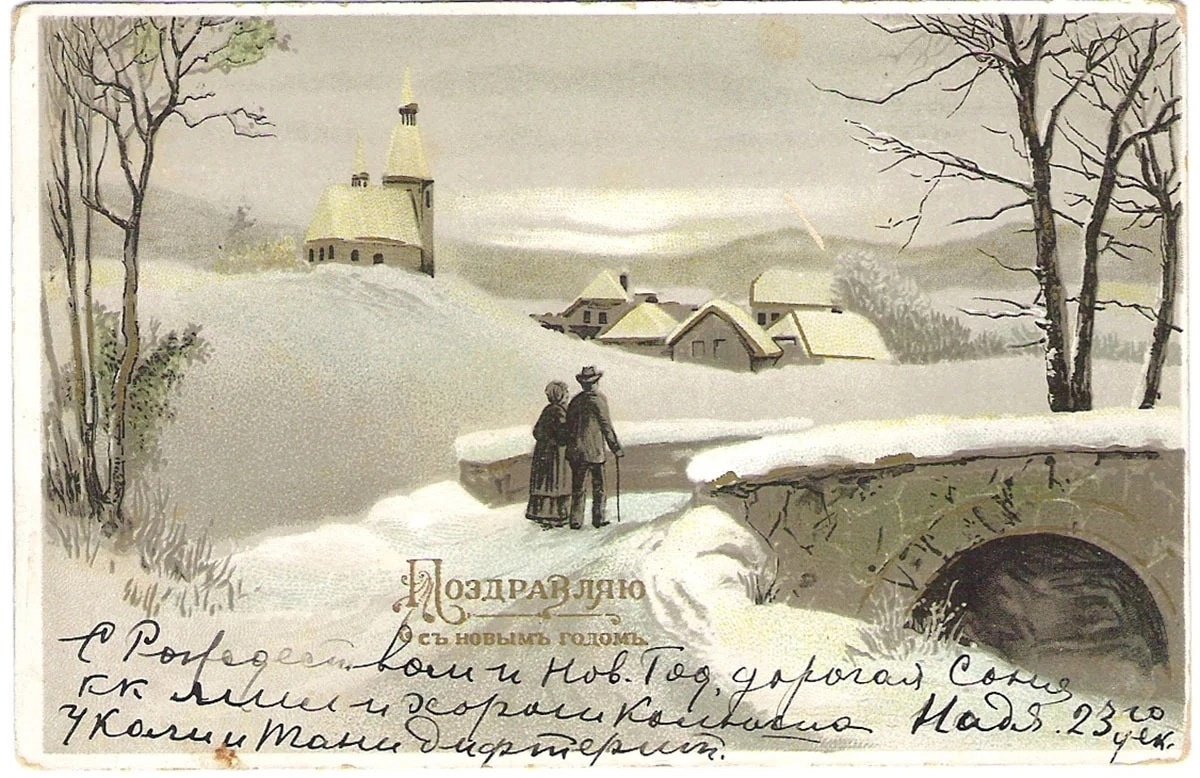 Поздравляю
съ новымъ годомъ.
С Рождеством и Нов. Год, дорогая Соня
Надя. 23го
У Коли и Тани дифтерит. дек.